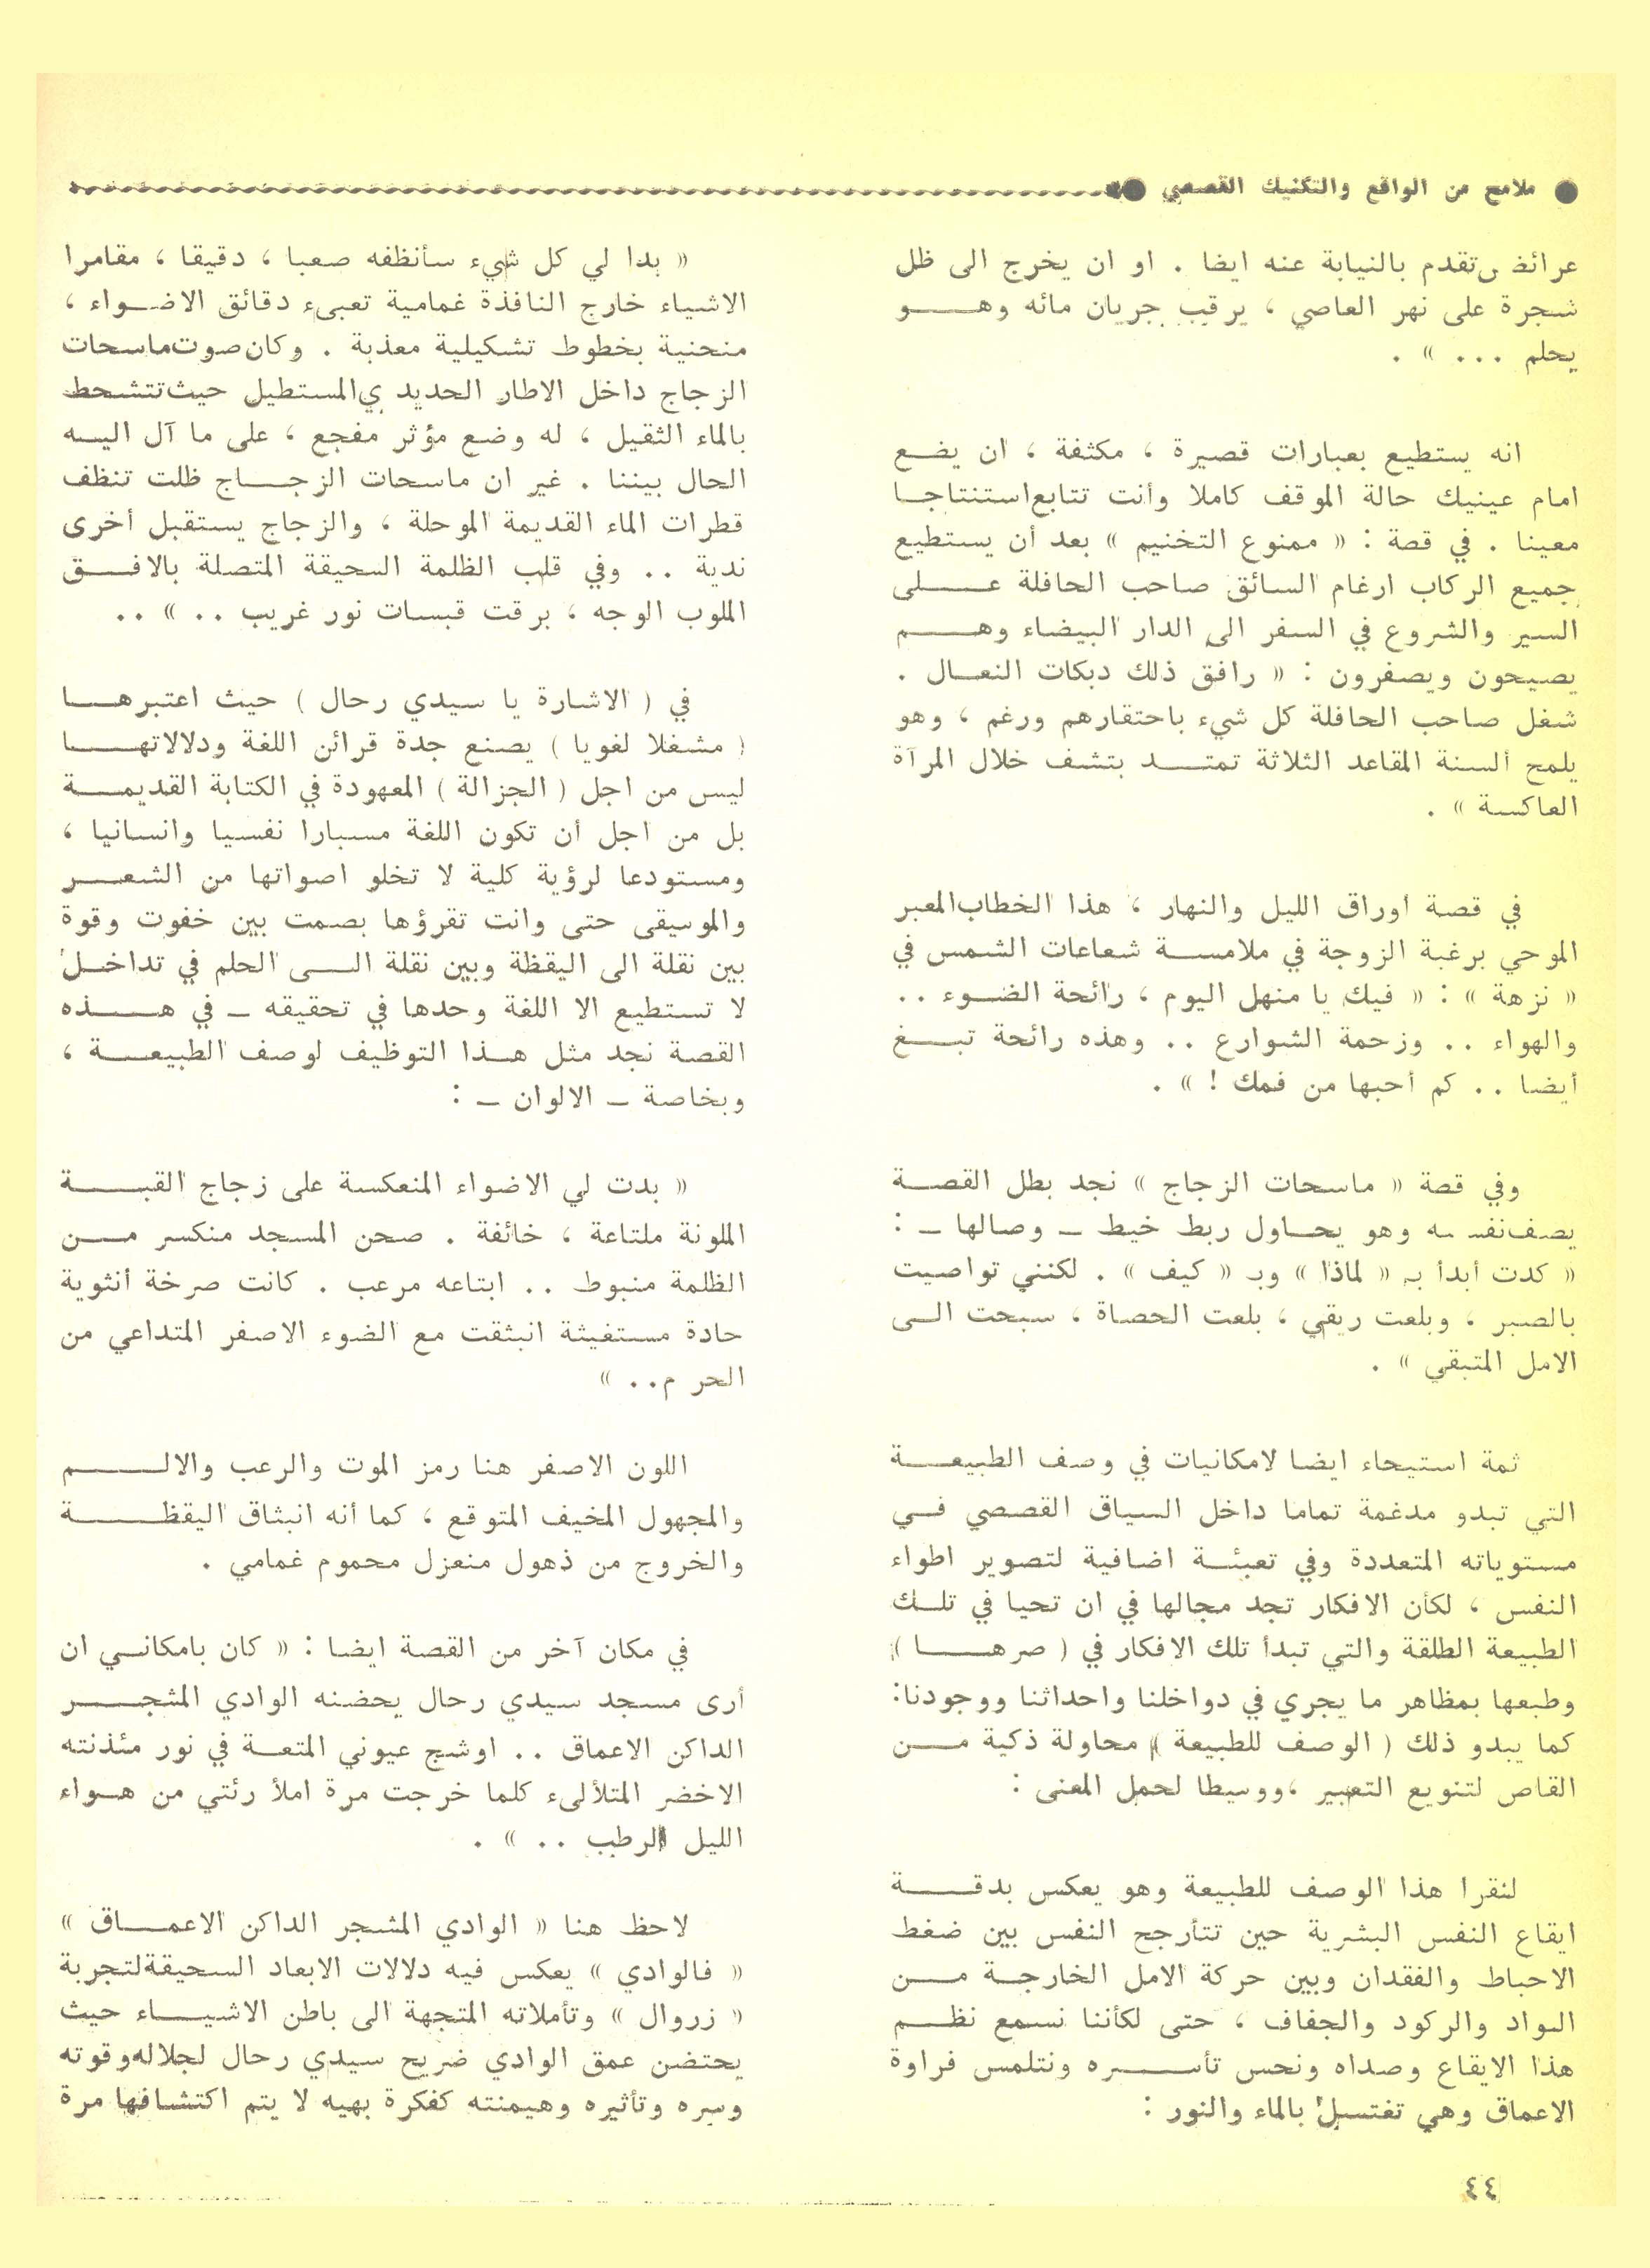 ● ملامح من الواقع والتكنيك القصصي ●
عرائض تقدم بالنيابة عنه ايضا . او ان يخرج الى ظل
شجرة على نهر العاصي ، يرقب جريان مائه وهو
يحلم ... » .
انه يستطيع بعبارات قصيرة ، مكثفة ، ان يضع
امام عينيك حالة الموقف كاملا وأنت تتابع استنتاجا
معينا . في قصة : « ممنوع التخنيم » بعد أن يستطيع
جميع الركاب ارغام السائق صاحب الحافلة على
السير والشروع في السفر الى الدار البيضاء وهم
يصيحون ويصفرون : « رافق ذلك دبكات النعال .
شغل صاحب الحافلة كل شيء باحتقارهم ورغم ، وهو
يلمح ألسنة المقاعد الثلاثة تمتد بتشف خلال المرآة
العاكسة » .
في قصة أوراق الليل والنهار ، هذا الخطاب المعبر
الموحي برغبة الزوجة في ملامسة شعاعات الشمس في
« نزهة » : « فيك يا منهل اليوم ، رائحة الضوء ..
والهواء .. وزحمة الشوارع .. وهذه رائحة تبغ
أيضا .. كم أحبها من فمك ! » .
وفي قصة « ماسحات الزجاج » نجد بطل القصة
يصف نفسه وهو يحاول ربط خيط ـ وصالها ـ :
« كدت أبدأ بـ « لماذا » وبـ « كيف » . لكنني تواصيت
بالصبر ، وبلعت ريقي ، بلعت الحصاة ، سبحت الى
الامل المتبقي » .
ثمة استيحاء ايضا لامكانيات في وصف الطبيعة
التي تبدو مدغمة تماما داخل السياق القصصي في
مستوياته المتعددة وفي تعبئة اضافية لتصوير اطواء
النفس ، لكأن الافكار تجد مجالها في ان تحيا في تلك
الطبيعة الطلقة والتي تبدأ تلك الافكار في ( صرها )
وطبعها بمظاهر ما يجري في دواخلنا واحداثنا ووجودنا:
كما يبدو ذلك ( الوصف للطبيعة ) محاولة ذكية من
القاص لتنويع التعبير ،ووسيطا لحمل المعنى :
لنقرا هذا الوصف للطبيعة وهو يعكس بدقة
ايقاع النفس البشرية حين تتأرجح النفس بين ضغط
الاحباط والفقدان وبين حركة الامل الخارجة من
السواد والركود والجفاف ، حتى لكأننا نسمع نظم
هذا الايقاع وصداه ونحس تأسره ونتلمس فراوة
الاعماق وهي تغتسل بالماء والنور :
« بدا لي كل شيء سأنظفه صعبا ، دقيقا ، مقامرا
الاشياء خارج النافذة غمامية تعبىء دقائق الاضواء ،
منحنية بخطوط تشكيلية معذبة . وكان صوت ماسحات
الزجاج داخل الاطار الحديدي المستطيل حيث تتشحط
بالماء الثقيل ، له وضع مؤثر مفجع ، على ما آل اليه
الحال بيننا . غير ان ماسحات الزجاج ظلت تنظف
قطرات الماء القديمة الموحلة ، والزجاج يستقبل أخرى
ندية .. وفي قلب الظلمة السحيقة المتصلة بالافق
الملوب الوجه ، برقت قبسات نور غريب .. » ..
في ( الاشارة يا سيدي رحال ) حيث اعتبرها
( مشغلا لغويا ) يصنع جدة قرائن اللغة ودلالاتها
ليس من اجل ( الجزالة ) المعهودة في الكتابة القديمة
بل من اجل أن تكون اللغة مسبارا نفسيا وانسانيا ،
ومستودعا لرؤية كلية لا تخلو اصواتها من الشعر
والموسيقى حتى وانت تقرؤها بصمت بين خفوت وقوة
بين نقلة الى اليقظة وبين نقلة الى الحلم في تداخل
لا تستطيع الا اللغة وحدها في تحقيقه ـ في هذه
القصة نجد مثل هذا التوظيف لوصف الطبيعة ،
وبخاصة ـ الالوان ـ :
« بدت لي الاضواء المنعكسة على زجاج القبة
الملونة ملتاعة ، خائفة . صحن المسجد منكسر من
الظلمة منبوط .. ابتاعه مرعب . كانت صرخة أنثوية
حادة مستغيثة انبثقت مع الضوء الاصفر المتداعي من
الحرم.. »
اللون الاصفر هنا رمز الموت والرعب والالم
والمجهول المخيف المتوقع ، كما أنه انبثاق اليقظة
والخروج من ذهول منعزل محموم غمامي .
في مكان آخر من القصة ايضا : « كان بامكاني ان
أرى مسجد سيدي رحال يحضنه الوادي المشجر
الداكن الاعماق .. اوشج عيوني المتعة في نور مئذنته
الاخضر المتلألىء كلما خرجت مرة املأ رئتي من هواء
الليل الرطب .. » .
لاحظ هنا « الوادي المشجر الداكن الاعماق »
« فالوادي » يعكس فيه دلالات الابعاد السحيقة لتجربة
« زروال » وتأملاته المتجهة الى باطن الاشياء حيث
يحتضن عمق الوادي ضريح سيدي رحال لجلاله وقوته
وسره وتأثيره وهيمنته كفكرة بهيه لا يتم اكتشافها مرة
٤٤